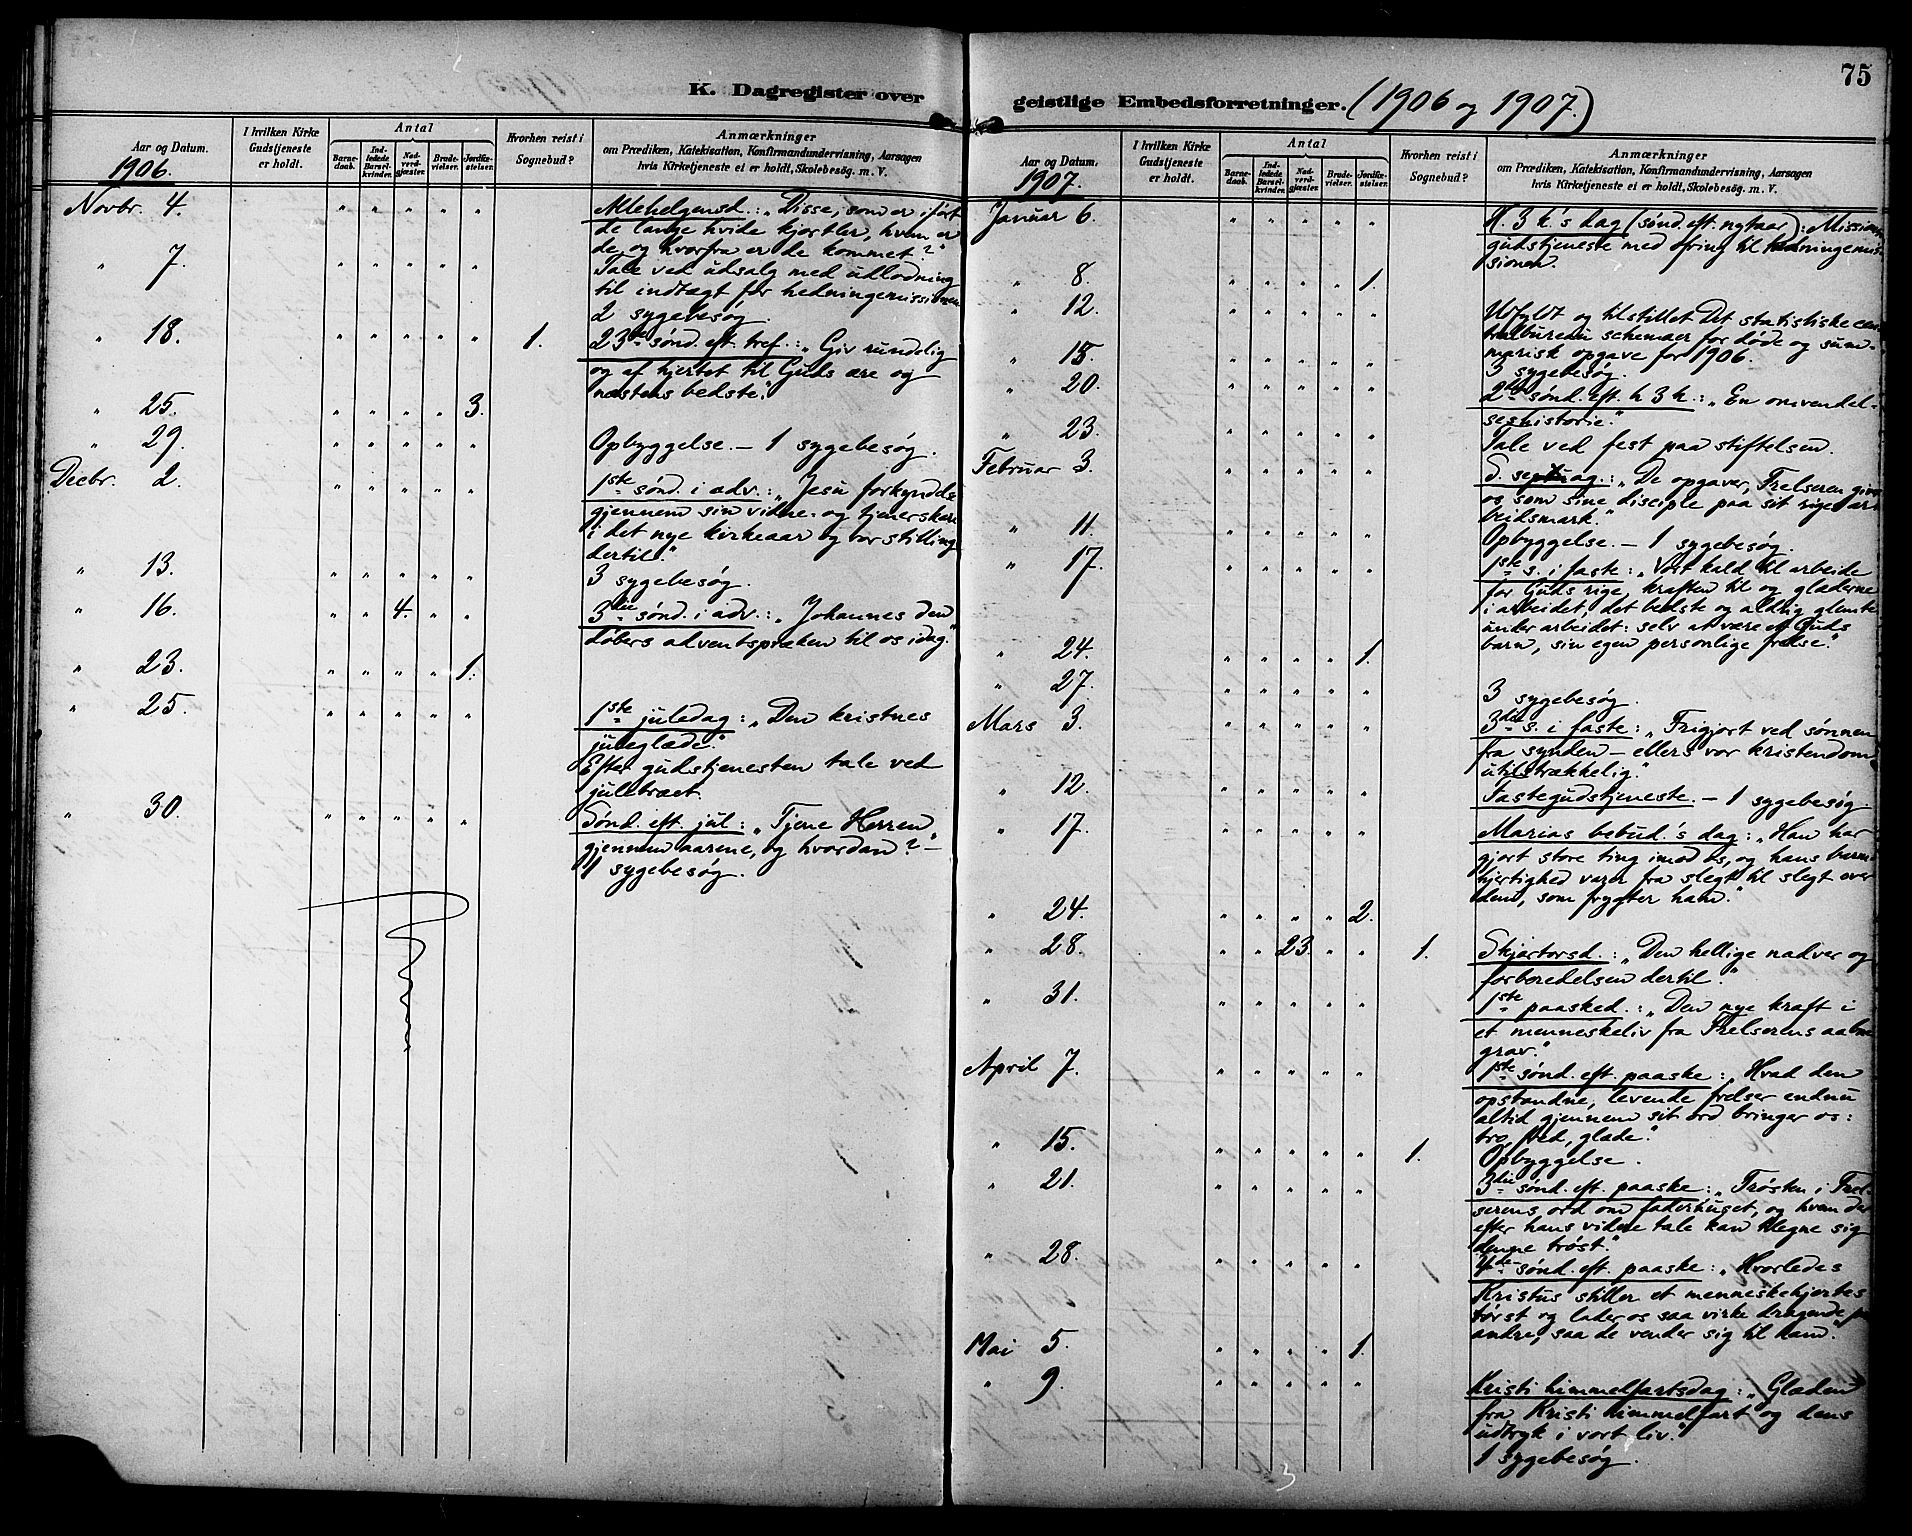 75
K. Dagregister over geistlige Embedsforretninger. (1906 og 1907.)
Aar og Datum.
1906.
I hvilken Kirke Gudstjeneste er holdt.
Antal
Barnedaab.
Indledede Barselkvinder.
Nadverdgjæster.
Brudevielser.
Jordfæstelser.
Hvorhen reist i Sognebud?
Anmærkninger
om Prædiken, Katekisation, Konfirmandundervisning, Aarsagen
hvis Kirketjeneste ei er holdt, Skolebesög. m. V.
Novbr. 4. " " " " " Allehelgensd.: „Disse, som er iført
de lange hvide kjortler, hvem er
de og hvorfra er de kommet?"
" 7. " " " " " Tale ved udsalg med udlodning
til indtægt for hedningemissionen
2 sygebesøg.
" 18. " " " " " 1. 23de sønd. eft. tref.: „Giv rundelig
og af hjertet til Guds ære og
næstens bedste."
" 25. " " " " 3.
" 29. " " " " " Opbyggelse. – 1 sygebesøg.
Decbr. 2. " " " " " 1ste sønd. i adv.: „Jesu forkyndelse
gjennem sin vidne- og tjenerskare
i det nye kirkeaar og vor stilling
dertil."
" 13. " " " " " 3 sygebesøg.
" 16. " " 4. " " 3die sønd. i adv.: „Johannes den
døbers adventspræken til os idag."
" 23. " " " " 1.
" 25. " " " " " 1ste juledag: „Den kristnes
juleglæde."
Efter gudstjenesten tale ved
juletræet.
" 30. " " " " " Sønd. eft. jul: „Tjene Herren
gjennem aarene, og hvordan?" –
1 sygebesøg.
Aar og Datum.
1907.
I hvilken Kirke Gudstjeneste er holdt.
Antal
Barnedaab.
Indledede Barselkvinder.
Nadverdgjæster.
Brudevielser.
Jordfæstelser.
Hvorhen reist i Sognebud?
Anmærkninger
om Prædiken, Katekisation, Konfirmandundervisning, Aarsagen
hvis Kirketjeneste ei er holdt, Skolebesög m. V.
Januar 6. " " " " " H. 3 k.'s dag (sønd. eft. nytaar): Missions-
gudstjeneste med ofring til hedningemis-
sionen.
" 8. " " " " 1.
" 12. " " " " " Udfyldt og tilstillet Det statistiske cen-
tralbureau schemaer for døde og sum-
marisk opgave for 1906.
" 15. " " " " " 3 sygebesøg.
" 20. " " " " " 2den sønd. eft. h 3 k.: „En omvendel-
seshistorie."
" 23. " " " " " Tale ved fest paa stiftelsen.
Februar 3. " " " " " S. septuag.: „De opgaver, Frelseren giver
os som sine disciple paa sit riges ar-
beidsmark."
" 11. " " " " " Opbyggelse. – 1 sygebesøg.
" 17. " " " " " 1ste s. i faste: „Vort kald til arbeide
for Guds rige, kraften til og glæderne
i arbeidet, det bedste og aldrig glemte
under arbeidet: selv at være et Guds
barn, sin egen personlige frelse."
" 24. " " " " 1.
" 27. " " " " " 3 sygebesøg.
Mars 3. " " " " " 3die s. i faste: „Frigjort ved sønnen
fra synden – ellers vor kristendom
utilstrækkelig."
" 12. " " " " " Fastegudstjeneste. – 1 sygebesøg.
" 17. " " " " " Marias bebud.'s dag: „Han har
gjort store ting imod os, og hans barm-
hjertighed varer fra slegt til slegt over
dem, som frygter ham."
" 24. " " " " 2.
" 28. " " 23. " " 1. Skjærtorsd.: „Den hellige nadver og
forberedelsen dertil."
" 31. " " " " " 1ste paasked.: „Den nye kraft i
et menneskeliv fra Frelserens aabne
grav."
April 7. " " " " " 1ste sønd. eft. paaske: „Hvad den
opstandne, levende frelser endnu
altid gjennem sit ord bringer os:
tro, fred, glæde."
" 15. " " " " " 1. Opbyggelse.
" 21. " " " " " 3die sønd. eft. paaske: „Trøsten i Frel-
serens ord om faderhuset, og hvem der
efter hans vidne tale kan tilegne sig
denne trøst."
" 28. " " " " " 4de sønd. eft. paaske: „Hvorledes
Kristus stiller et menneskehjertes
tørst og lader os saa virke dragende paa
andre, saa de vender sig til ham."
Mai 5. " " " " 1.
" 9. " " " " " Kristi himmelfartsdag: „Glæden
fra Kristi himmelfart og dens
udtryk i vort liv."
1 sygebesøg.